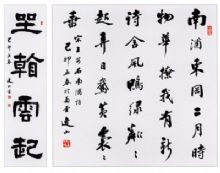 南浦東岡二月時
物華撩我有新
詩含風鴨綠粼〻
起弄日鵝黃裊〻
垂
宋王安石南浦詩
己卯
翰雲起
己卯